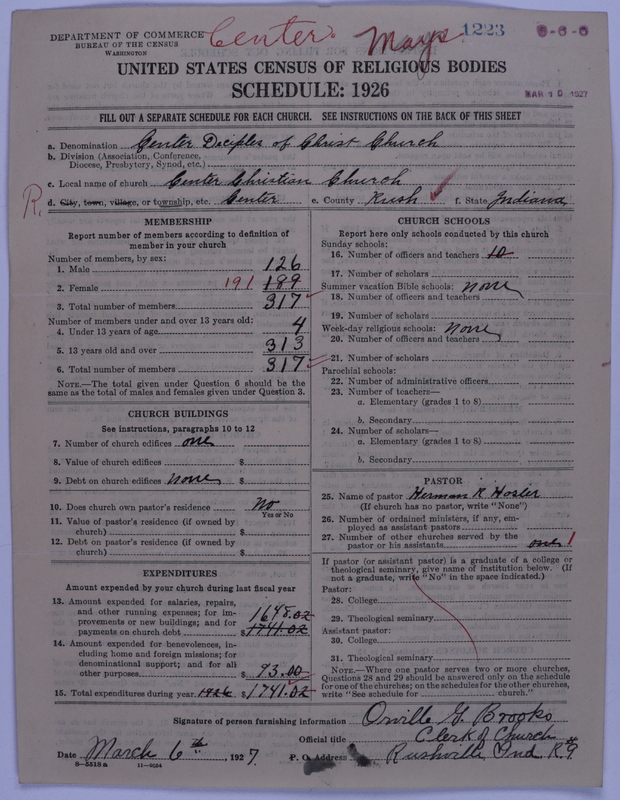 DEPARTMENT OF COMMERCE
BUREAU OF THE CENSUS
WASHINGTON
Center. Mays
1223
MAR 10 1927
UNITED STATES CENSUS OF RELIGIOUS BODIES
SCHEDULE: 1926
FILL OUT A SEPARATE SCHEDULE FOR EACH CHURCH. SEE INSTRUCTIONS ON THE BACK OF THIS SHEET
a. Denomination Center Deciples of Christ Church
b. Division (Association, Conference,
Diocese, Presbytery, Synod, etc.)
c. Local name of church Center Christian Church
R. d. City, town, village, or township, etc. Center e. County Rush f. State Indiana
MEMBERSHIP
Report number of members according to definition of
member in your church
Number of members, by sex:
1. Male 126
2. Female 191 189
3. Total number of members 317
Number of members under and over 13 years old:
4. Under 13 years of age 4
5. 13 years old and over 313
6. Total number of members 317
NOTE.—The total given under Question 6 should be
same as the total of males and females given under Question 3.
CHURCH BUILDINGS
See instructions, paragraphs 10 to 12
7. Number of church edifices one
8. Value of church edifices $
9. Debt on church edifices None $
10. Does church own pastor's residence No
Yes or No
11. Value of pastor's residence (if owned by
church) $
12. Debt on pastor's residence (if owned by
church) $
EXPENDITURES
Amount expended by your church during last fiscal year
13. Amount expended for salaries, repairs,
and other running expenses; for im-
provements or new buildings; and for
payments on church debt 1648.02
$ 1741.02
14. Amount expended for benevolences, in-
cluding home and foreign missions; for
denominational support; and for all
other purposes $ 93.00
15. Total expenditures during year 1926 $ 1741.02
CHURCH SCHOOLS
Report here only schools conducted by this church
Sunday schools:
16. Number of officers and teachers 10
17. Number of scholars
Summer vacation Bible schools: none
18. Number of officers and teachers
19. Number of scholars
Week-day religious schools: None
20. Number of officers and teachers
21. Number of scholars
Parochial schools:
22. Number of administrative officers
23. Number of teachers—
a. Elementary (grades 1 to 8)
b. Secondary
24. Number of scholars—
a. Elementary (grades 1 to 8)
b. Secondary
PASTOR
25. Name of pastor Herman R Hosler
(If church has no pastor, write "None")
26. Number of ordained ministers, if any, em-
ployed as assistant pastors
27. Number of other churches served by the
pastor or his assistants one 1
If pastor (or assistant pastor) is a graduate of a college or
theological seminary, give name of institution below. (If
not a graduate, write "No" in the space indicated.)
Pastor:
28. College
29. Theological seminary
Assistant pastor:
30. College
31. Theological seminary
NOTE.—Where one pastor serves two or more churches,
Questions 28 and 29 should be answered only on the schedule
for one of the churches; on the schedules for the other churches,
write "See schedule for church."
Signature of person furnishing information Orville G. Brooks
Official title Clerk of Church
Date March 6th, 1927 P. O. Address Rushville Ind. R #9
8—5518a 11—9054